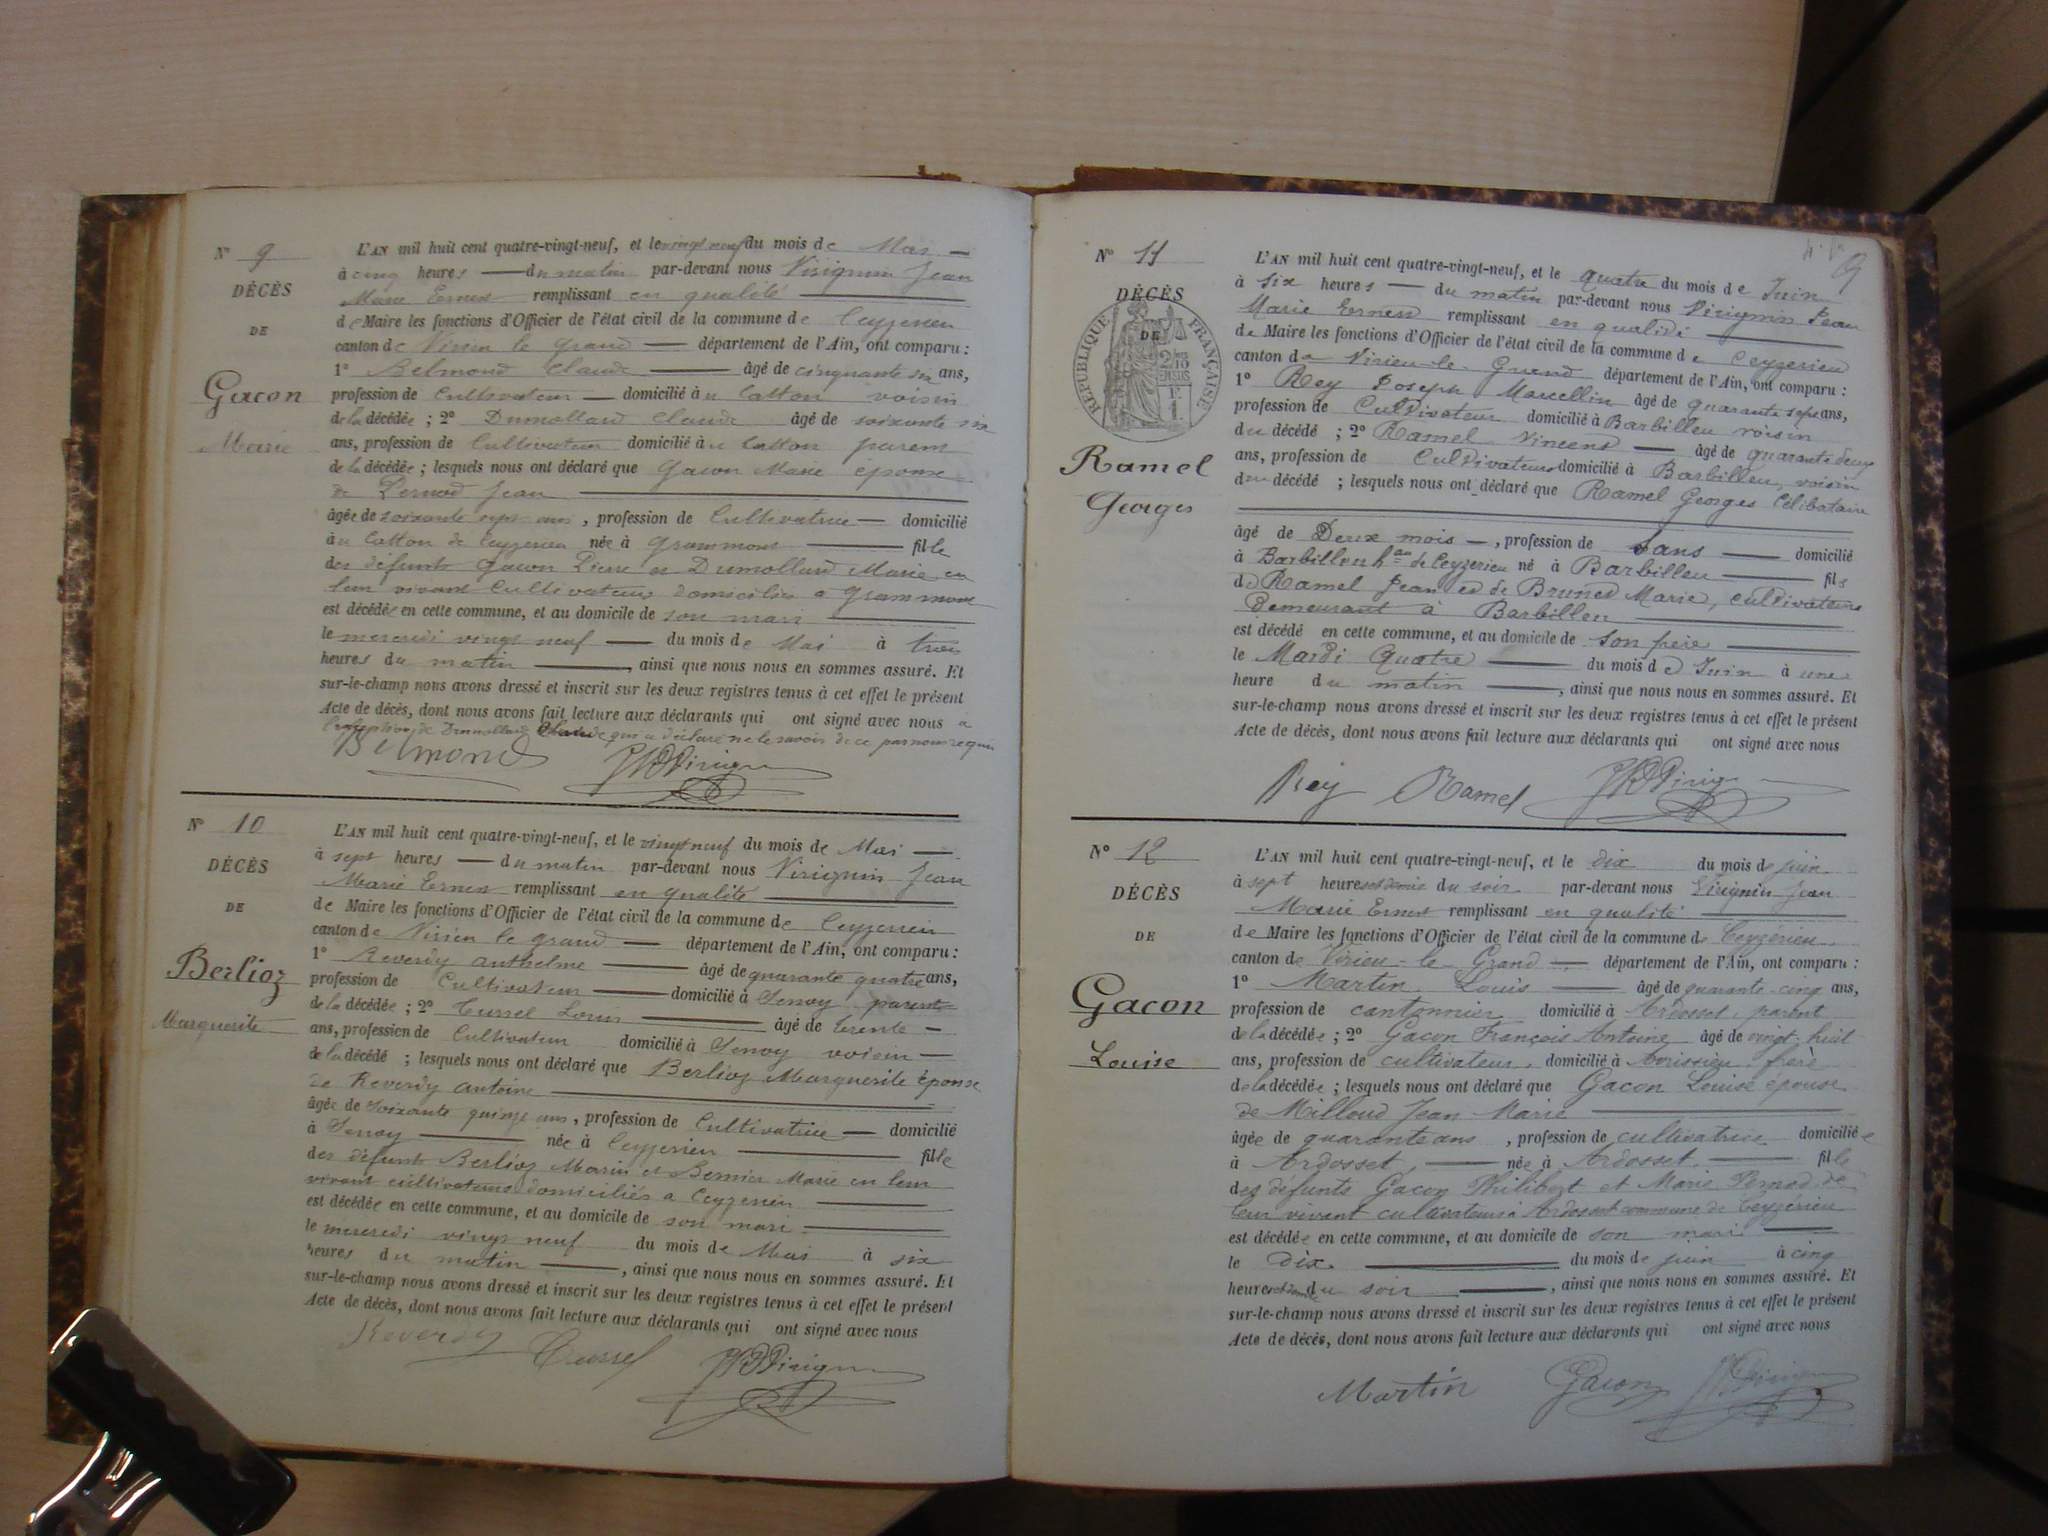 N° 9
DÉCÈS
DE
Gacon
Marie
L'AN mil huit cent quatre-vingt-neuf, et le vingt neuf du mois de Mai
à cinq heures du matin par-devant nous Virignin Jean
Marie Ernest remplissant en qualité
de Maire les fonctions d'Officier de l'état civil de la commune de Ceyzerieu
canton de Virieu le grand département de l'Ain, ont comparu :
1° Belmond Claude âgé de cinquante six ans,
profession de Cultivateur domicilié à u Catton voisin
de la décédée ; 2° Dumollard Claude âgé de soixante six
ans, profession de Cultivateur domicilié à u Catton parent
de la décédée ; lesquels nous ont déclaré que Gacon Marie épouse
de Pernod Jean
âgée de soixante sept ans, profession de Cultivatrice domicilié
à u Catton de Ceyzerieu née à Grammont fille
des défunts Gacon Pierre et Dumollard Marie en
leur vivant Cultivateurs domiciliés a Grammont
est décédée en cette commune, et au domicile de son mari
le mercredi vingt neuf du mois de Mai à trois
heures du matin, ainsi que nous nous en sommes assuré. Et
sur-le-champ nous avons dressé et inscrit sur les deux registres tenus à cet effet le présent
Acte de décès, dont nous avons fait lecture aux déclarants qui ont signé avec nous à
l'exception de Dumollard Claude qui a déclaré ne le savoir de ce par nous requis
Belmond
N° 10
DÉCÈS
DE
Berlioz
Marguerite
L'AN mil huit cent quatre-vingt-neuf, et le vingt neuf du mois de Mai
à sept heures du matin par-devant nous Virignin Jean
Marie Ernest remplissant en qualité
de Maire les fonctions d'Officier de l'état civil de la commune de Ceyzerieu
canton de Virieu le grand département de l'Ain, ont comparu :
1° Reverdy anthelme âgé de quarante quatre ans,
profession de Cultivateur domicilié à Senoy parent
de la décédée ; 2° Cussel Louis âgé de trente
ans, profession de Cultivateur domicilié à Senoy voisin
de la décédé ; lesquels nous ont déclaré que Berlioz Marguerite épouse
de Reverdy antoine
âgée de soixante quinze ans, profession de Cultivatrice domicilié
à Senoy née à Ceyzerieu fille
des défunts Berlioz Marin et Bernier Marie en leur
vivant cultivateurs domiciliés a Ceyzerieu
est décédée en cette commune, et au domicile de son mari
le mercredi vingt neuf du mois de Mai à six
heures du matin, ainsi que nous nous en sommes assuré. Et
sur-le-champ nous avons dressé et inscrit sur les deux registres tenus à cet effet le présent
Acte de décès, dont nous avons fait lecture aux déclarants qui ont signé avec nous
Reverdy Cussel
9
N° 11
DÉCÈS
DE
RÉPUBLIQUE FRANÇAISE
Ramel
Georges
L'AN mil huit cent quatre-vingt-neuf, et le quatre du mois de Juin
à six heures du matin par-devant nous Virignin Jean
Marie Ernest remplissant en qualité
de Maire les fonctions d'Officier de l'état civil de la commune de Ceyzerieu
canton de Virieu-le-Grand département de l'Ain, ont comparu :
1° Rey Joseph Marcellin âgé de quarante sept ans,
profession de Cultivateur domicilié à Barbilleu voisin
du décédé ; 2° Ramel Vincent âgé de quarante deux
ans, profession de Cultivateur domicilié à Barbilleu, voisin
du décédé ; lesquels nous ont déclaré que Ramel Georges Célibataire
âgé de Deux mois, profession de Sans domicilié
à Barbilleu hau de Ceyzerieu né à Barbilleu fils
de Ramel Jean et de Brunet Marie, cultivateurs
Demeurant à Barbilleu
est décédé en cette commune, et au domicile de son père
le Mardi Quatre du mois de Juin à une
heure du matin, ainsi que nous nous en sommes assuré. Et
sur-le-champ nous avons dressé et inscrit sur les deux registres tenus à cet effet le présent
Acte de décès, dont nous avons fait lecture aux déclarants qui ont signé avec nous
Rey Ramel
N° 12
DÉCÈS
DE
Gacon
Louise
L'AN mil huit cent quatre-vingt-neuf, et le dix du mois de juin
à sept heures et demie du soir par-devant nous Virignin Jean
Marie Ernest remplissant en qualité
de Maire les fonctions d'Officier de l'état civil de la commune de Ceyzérieu
canton de Virieu-le-Grand département de l'Ain, ont comparu :
1° Martin Louis âgé de quarante-cinq ans,
profession de cantonnier domicilié à Ardosset, parent
de la décédée ; 2° Gacon François Antoine âgé de vingt-huit
ans, profession de cultivateur, domicilié à Avrissieu, frère
de la décédée ; lesquels nous ont déclaré que Gacon Louise épouse
de Milloud Jean Marie
âgée de quarante ans, profession de cultivatrice domiciliée
à Ardosset, née à Ardosset, fille
des défunts Gacon Philibert et Marie Pernod de
leur vivant cultivateurs à Ardosset commune de Ceyzérieu
est décédée en cette commune, et au domicile de son mari
le dix du mois de juin à cinq
heures et demie du soir, ainsi que nous nous en sommes assuré. Et
sur-le-champ nous avons dressé et inscrit sur les deux registres tenus à cet effet le présent
Acte de décès, dont nous avons fait lecture aux déclarants qui ont signé avec nous
Martin Gacon